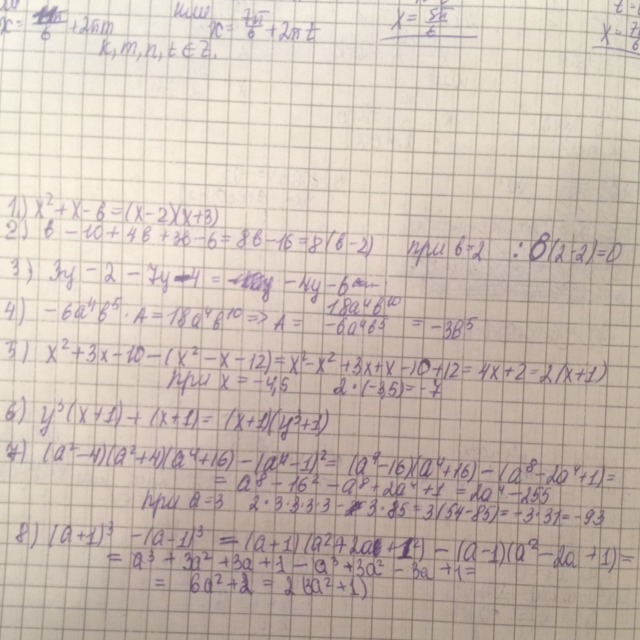 или
x = 5π/6
x = π/6 + 2πm
x = 7π/6 + 2πt
k, m, n, t ∈ Z.
1) x² + x - 6 = (x-2)(x+3)
2) в - 10 + 4в + 3в - 6 = 8в - 16 = 8(в-2) при в=2 : 8(2-2)=0
3) 3y - 2 - 7y - 4 = -4y - 6
4) -6a⁴b⁵ · A = 18a⁴b¹⁰ => A = 18a⁴b¹⁰ / -6a⁴b⁵ = -3b⁵
5) x² + 3x - 10 - (x² - x - 12) = x² - x² + 3x + x - 10 + 12 = 4x + 2 = 2(x+1)
при x = -4,5 2·(-3,5) = -7
6) y³(x+1) + (x+1) = (x+1)(y³+1)
7) (a²-4)(a²+4)(a⁴+16) - (a⁴-1)² = (a⁴-16)(a⁴+16) - (a⁸-2a⁴+1) =
= a⁸ - 16² - a⁸ + 2a⁴ + 1 = 2a⁴ - 255
при a=3 2·3·3·3·3 - 3·85 = 3(54-85) = -3·31 = -93
8) (a+1)³ - (a-1)³ = (a+1)(a²+2a+1) - (a-1)(a²-2a+1) =
= a³ + 3a² + 3a + 1 - a³ + 3a² - 3a + 1 =
= 6a² + 2 = 2(a²+1)